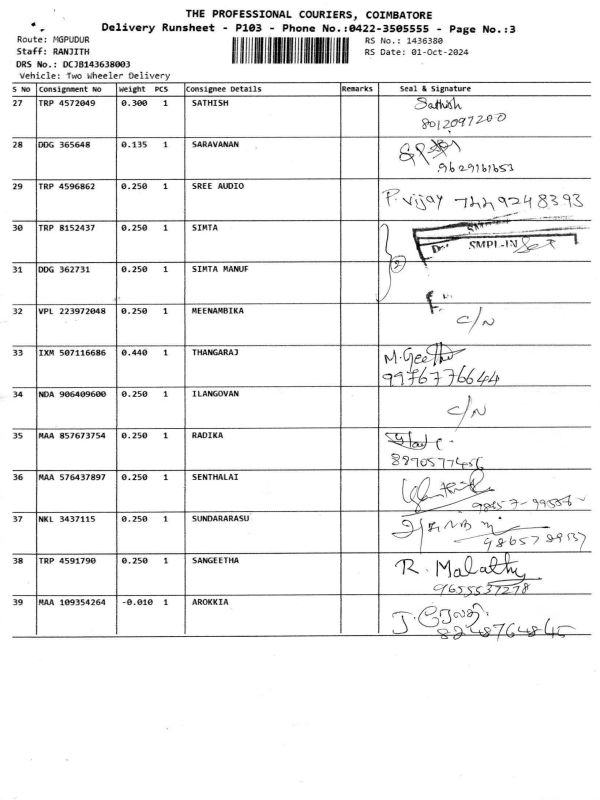 THE PROFESSIONAL COURIERS, COIMBATORE
Delivery Runsheet - P103 - Phone No.:0422-3505555 - Page No.:3
Route: MGPUDUR
Staff: RANJITH
DRS No.: DCJB143638003
Vehicle: Two Wheeler Delivery
RS No.: 1436380
RS Date: 01-Oct-2024
S No Consignment No Weight PCS Consignee Details Remarks Seal & Signature
27 TRP 4572049 0.300 1 SATHISH Sathish
8012097200
28 DDG 365648 0.135 1 SARAVANAN
9629161653
29 TRP 4596862 0.250 1 SREE AUDIO P. Vijay 7449248393
30 TRP 8152437 0.250 1 SIMTA SMPL-IN
2
31 DDG 362731 0.250 1 SIMTA MANUF
32 VPL 223972048 0.250 1 MEENAMBIKA C/N
33 IXM 507116686 0.440 1 THANGARAJ M. Geetha
9976776644
34 NDA 906409600 0.250 1 ILANGOVAN C/N
35 MAA 857673754 0.250 1 RADIKA
8870577456
36 MAA 576437897 0.250 1 SENTHALAI
37 NKL 3437115 0.250 1 SUNDARARASU
38 TRP 4591790 0.250 1 SANGEETHA R. Malathy
9655537278
39 MAA 109354264 -0.010 1 AROKKIA
8248764845